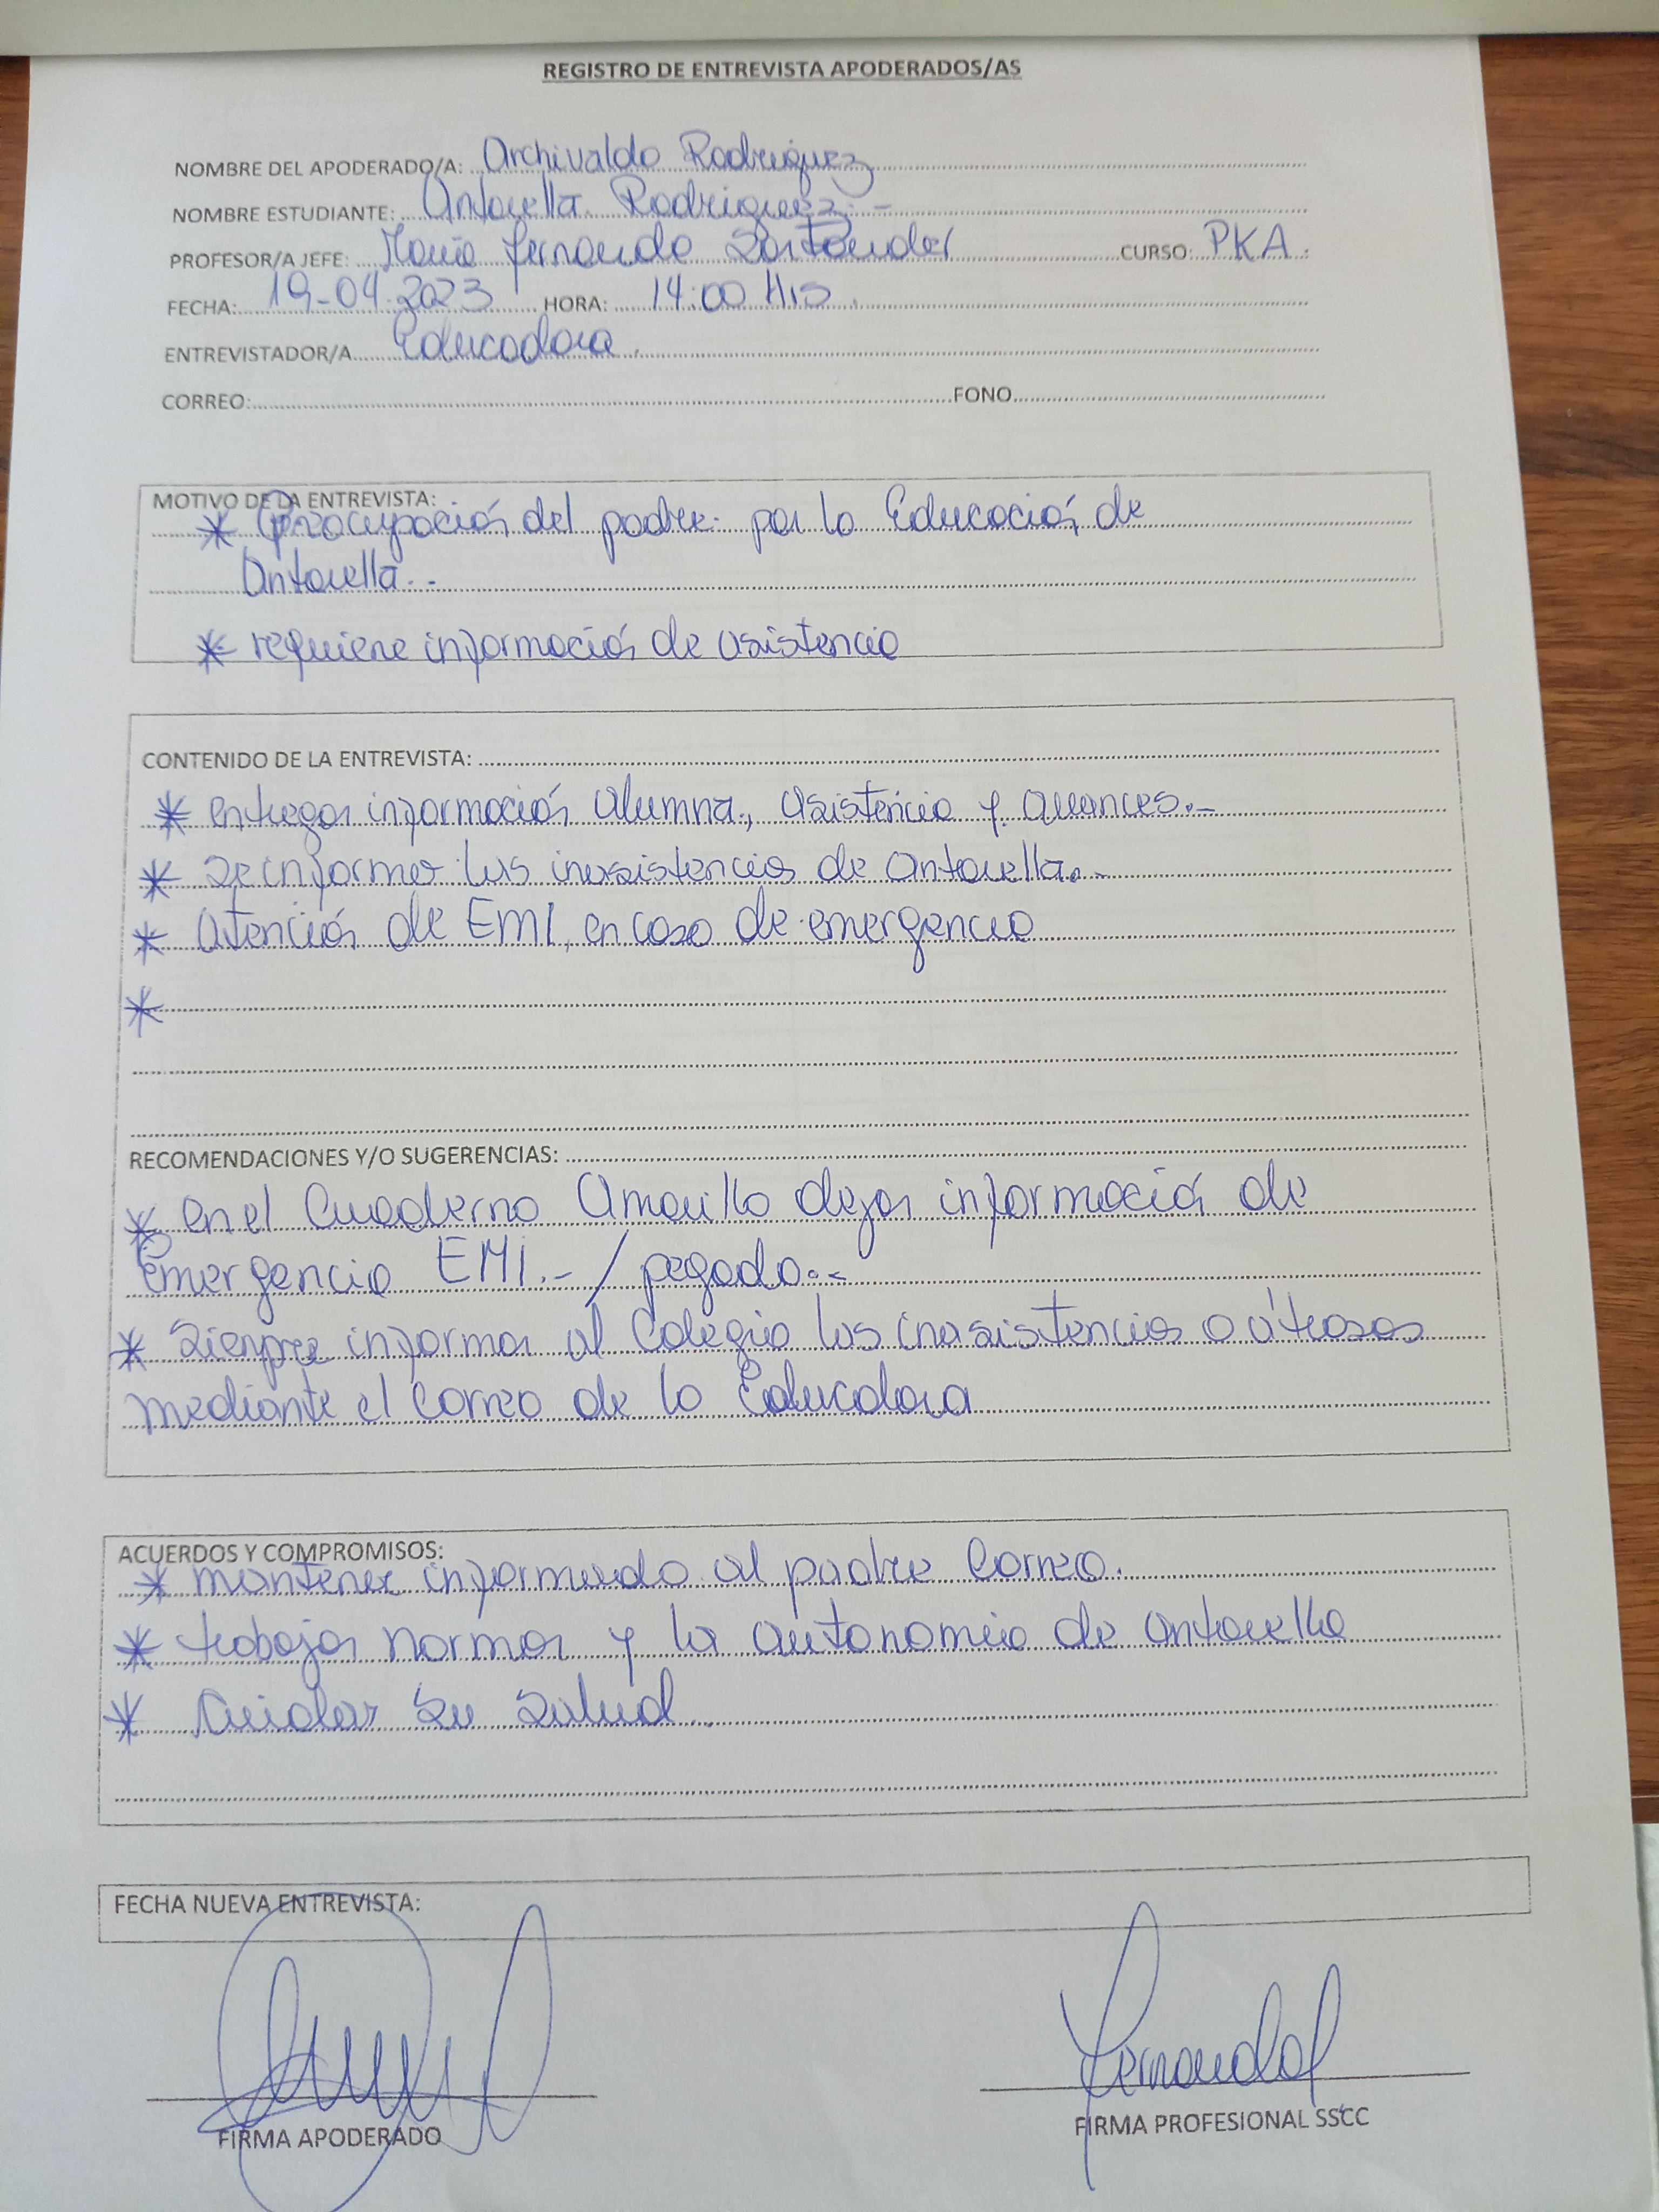 REGISTRO DE ENTREVISTA APODERADOS/AS
NOMBRE DEL APODERADO/A: Archivaldo Rodriguez
NOMBRE ESTUDIANTE: Antonella Rodriguez.-
PROFESOR/A JEFE: María Fernanda Santander CURSO: PKA.
FECHA: 19-04-2023 HORA: 14:00 Hrs.
ENTREVISTADOR/A Educadora.
CORREO: FONO
MOTIVO DE LA ENTREVISTA:
* Preocupación del padre por la Educación de
Antonella.-
* requiere información de asistencia
CONTENIDO DE LA ENTREVISTA:
* entregar información alumna, asistencia y avances.-
* se informar las inasistencias de Antonella.-
* Atención de EMI, en caso de emergencia
*
RECOMENDACIONES Y/O SUGERENCIAS:
* en el Cuaderno Amarillo dejar información de
emergencia EMI.- / pegado.-
* siempre informar al Colegio las inasistencias o atrasos
mediante el correo de la Educadora
ACUERDOS Y COMPROMISOS:
* mantener informado al padre Correo.
* trabajar normas y la autonomia de Antonella
* Cuidar su salud.
FECHA NUEVA ENTREVISTA:
Fernanda
FIRMA APODERADO FIRMA PROFESIONAL SSCC